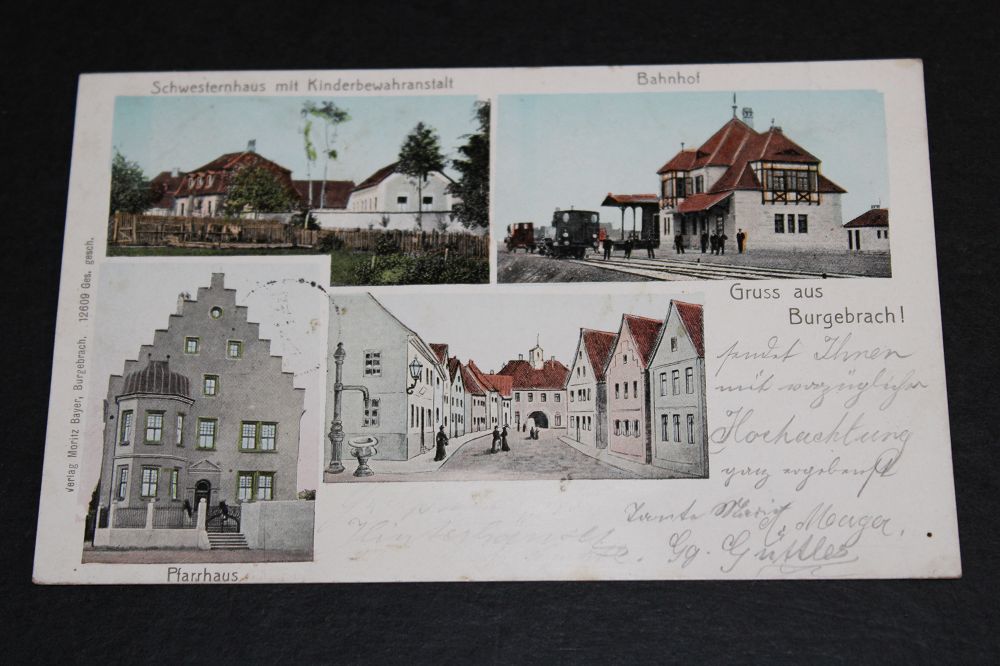 Schwesternhaus mit Kinderbewahranstalt
Bahnhof
Verlag Moritz Bayer, Burgebrach. 12609 Ges. gesch.
Gruss aus
Burgebrach!
sendet Ihnen
mit vorzüglicher
Hochachtung
ganz ergebenst
Tante
Gg. Güttler
Pfarrhaus